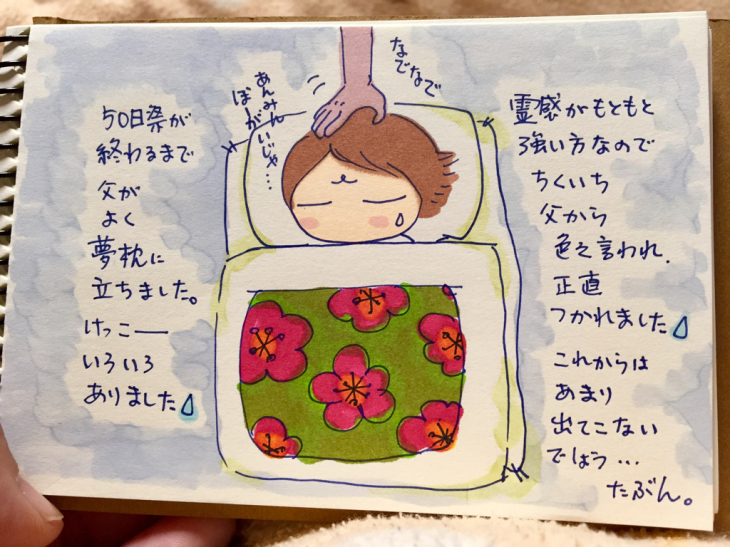 50日祭が
終わるまで
父が
よく
夢枕に
立ちました。
けっこー
いろいろ
ありました
なでなで
あんみん
ぼうがいじゃ…
霊感がもともと
強い方なので
ちくいち
父から
色々言われ、
正直
つかれました
これからは
あまり
出てこない
でしょう…
たぶん。